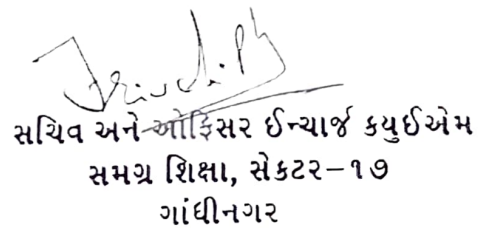 સચિવ અને ઓફિસર ઈન્ચાર્જ કયુઈએમ
સમગ્ર શિક્ષા, સેકટર-૧૭
ગાંધીનગર